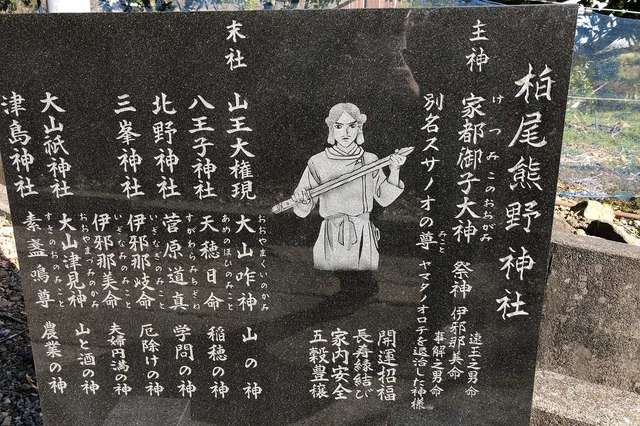 柏尾熊野神社
主神
けつみこのおおがみ
家都御子大神
祭神 伊邪那美命
速玉之男命
事解之男命
みこと
別名スサノオの尊
ヤマタノオロチを退治した神様
開運招福
長寿縁結び
家内安全
五穀豊穣
末社
山王大権現
おおやまくいのかみ
大山咋神
山の神
八王子神社
あめのほひのみこと
天穂日命
稲穂の神
北野神社
すがわらみちざね
菅原道真
学問の神
三峯神社
いざなぎのみこと
伊邪那岐命
厄除けの神
いざなみのみこと
伊邪那美命
夫婦円満の神
大山祇神社
おおやまつみのかみ
大山津見神
山と酒の神
津島神社
すさのおのみこと
素盞鳴尊
農業の神